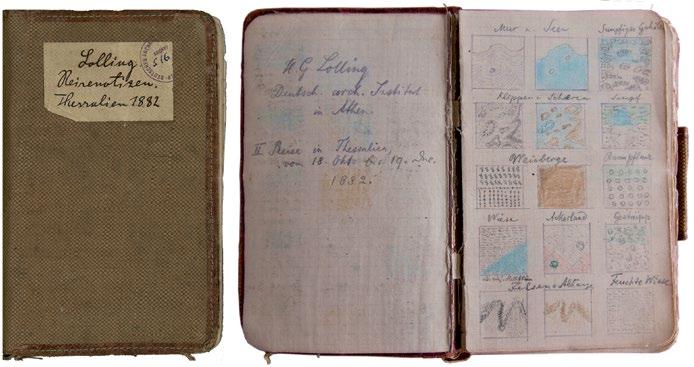 Lolling
Reisenotizen.
Thessalien 1882
516
H G Lolling
Deutsch. arch. Institut
in Athen
II Reise in Thessalien,
vom 18. Okt. bis 19. Dec.
1882.
Meer u. Seen
Sumpfiges Gehölz
Klippen u. Scheren
Sumpf
Weinberge
Baumpflanz
Wiese
Ackerland
Gestrüpp
Felsen u. Abhänge
Feuchte Wiese